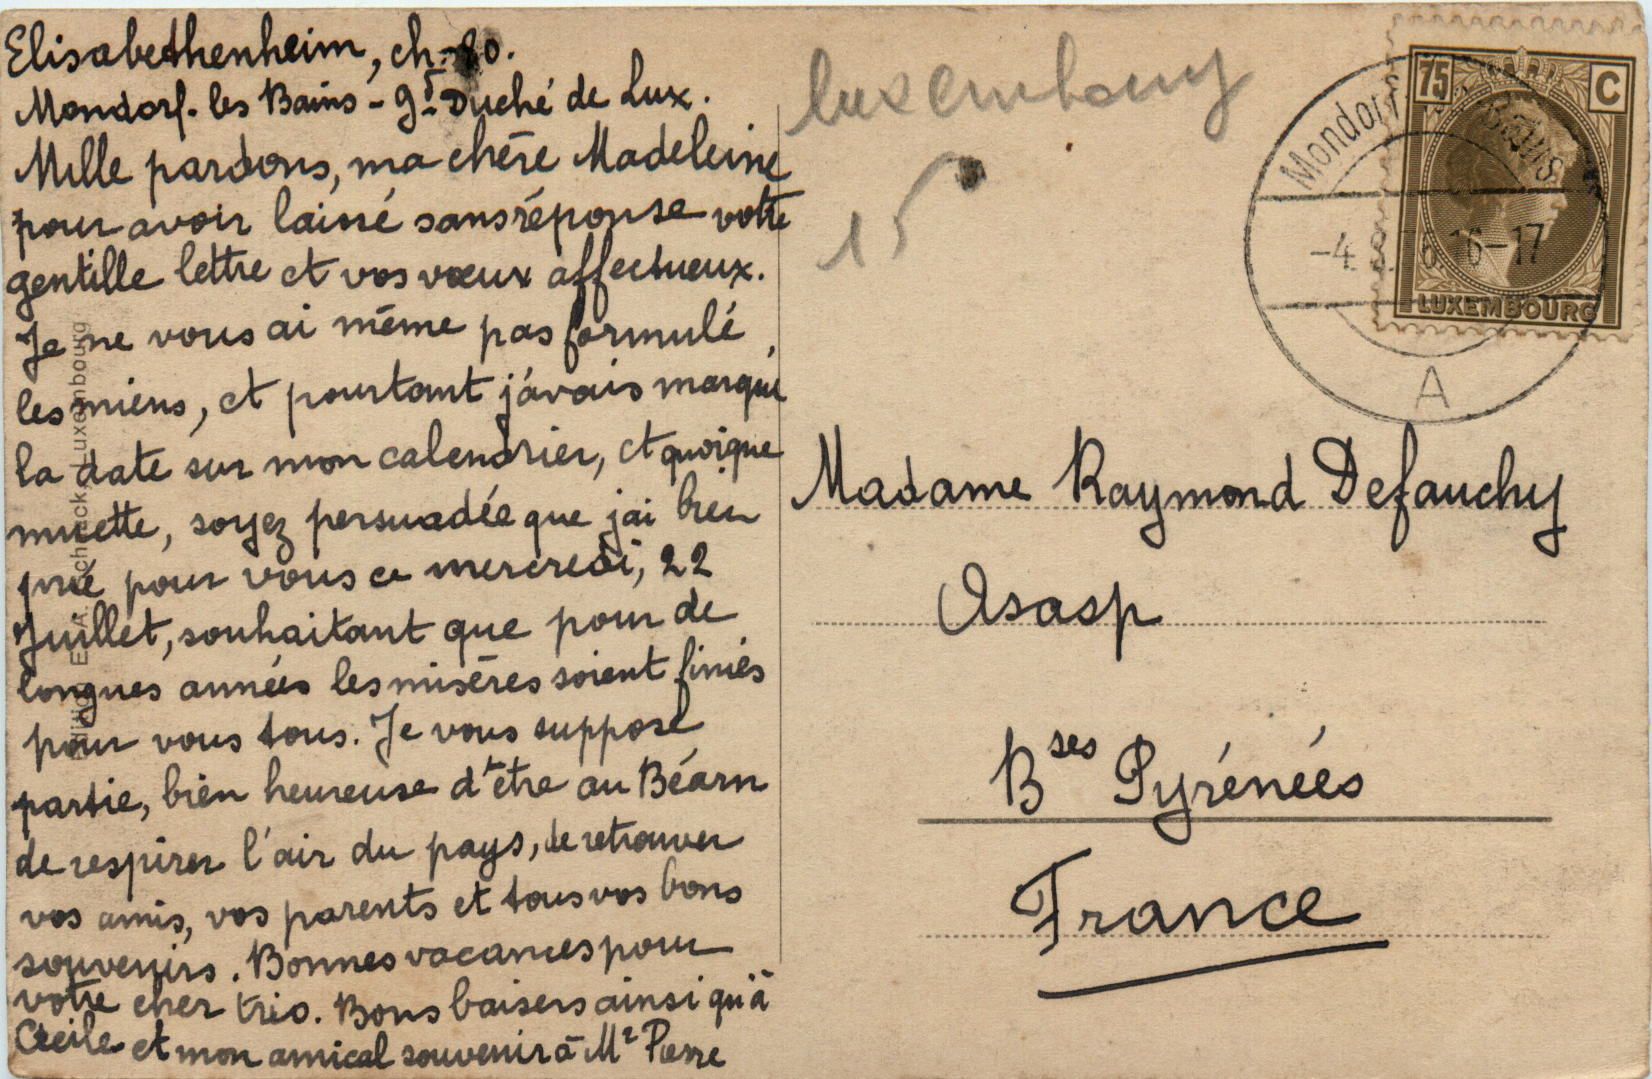 Elisabethenheim, ch. 80.
Mondorf. les Bains - Gd Duché de Lux.
Mille pardons, ma chère Madeleine
pour avoir laissé sans réponse votre
gentille lettre et vos vœux affectueux.
Je ne vous ai même pas formulé
les miens, et pourtant j'avais marqué
la date sur mon calendrier, et quoique
muette, soyez persuadée que j'ai bien
prié pour vous ce mercredi, 22
Juillet, souhaitant que pour de
longues années les misères soient finies
pour vous tous. Je vous suppose
partie, bien heureuse d'être au Béarn
de respirer l'air du pays, de retrouver
vos amis, vos parents et tous vos bons
souvenirs. Bonnes vacances pour
votre cher trio. Bons baisers ainsi qu'à
Cécile et mon amical souvenir à Mr Pierre
Luxembourg
luxembourg
15
75 C
LUXEMBOURG
Mondorf Bains
-4. 8. 36 16-17
A
Madame Raymond Defauchy
Asasp
Bses Pyrénées
France